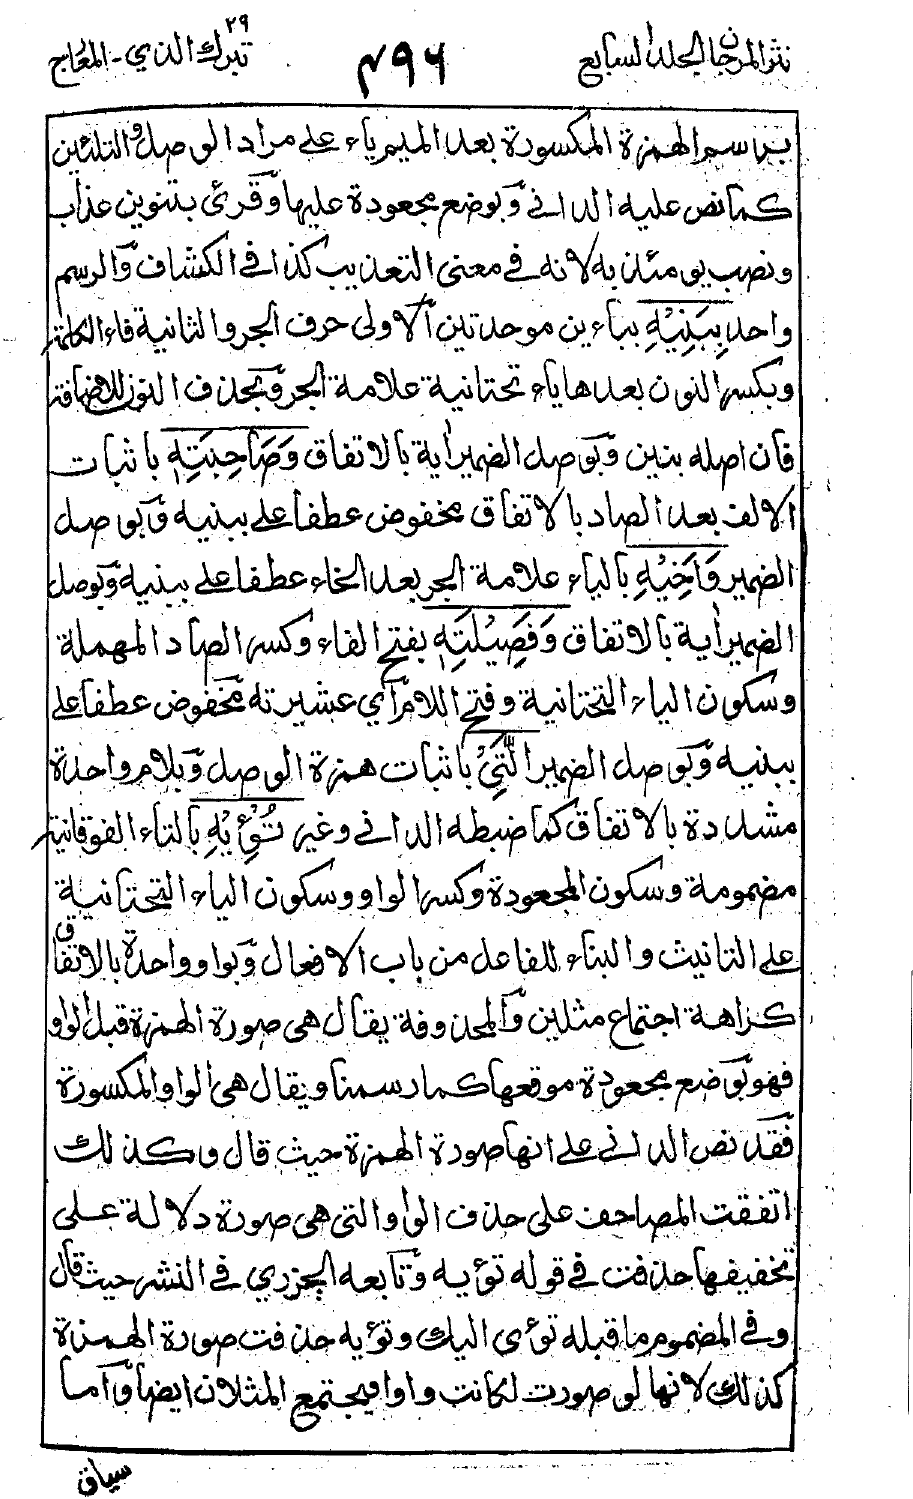 نثر المرجان الجلد السابع
٤٩٦
تبرك الذي ٢٩ - المعارج
برسم الهمزة المكسورة بعد الميم ياء على مراد الوصل والتلئين
كما نص عليه الداني وبوضع مجعودة عليها وقرئ بتنوين عذاب
ونصب يومئذ به لانه في معنى التعذيب كذا في الكشاف والرسم
واحد بِبَنِيْهِ بباءين موحدتين الاولى حرف الجر والثانية فاء الكلمة
وبكسر النون بعدها ياء تحتانية علامة الجر وبحذف النون للاضافة
فان اصله بنين وبوصل الضمير اية بالاتفاق وَصَاحِبَتِهٖ باثبات
الالف بعد الصاد بالاتفاق مخفوض عطفا على ببنيه وبوصل
الضمير وَاَخِيْهِ بالياء علامة الجر بعد الخاء عطفا على ببنيه وبوصل
الضمير اية بالاتفاق وَفَصِيْلَتِهِ بفتح الفاء وكسر الصاد المهملة
وسكون الياء التحتانية وفتح اللام اي عشيرته مخفوض عطفا على
ببنيه وبوصل الضمير الَّتِيْ باثبات همزة الوصل وبلام واحدة
مشددة بالاتفاق كما ضبطه الداني وغير تُـْٔوِيْهِ بالتاء الفوقانية
مضمومة وسكون المجعودة وكسر الواو وسكون الياء التحتانية
على التانيث والبناء للفاعل من باب الافعال وبواو واحدة بالاتفاق
كراهة اجتماع مثلين والمحذوفة يقال هي صورة الهمزة قبل الواو
فهو بوضع مجعودة موقعها كما رسمنا ويقال هي الواو المكسورة
فقد نص الداني على انها صورة الهمزة حيث قال وكذلك
اتفقت المصاحف على حذف الواو التي هي صورة دلالة على
تخفيفها حذفت في قوله تؤيه وتابعه الجزري في النشر حيث قال
وفي المضموم ما قبله تؤى اليك وتؤيه حذفت صورة الهمزة
كذلك لانها لو صورت لكانت واوا فيجتمع المثلان ايضا واما
سياق